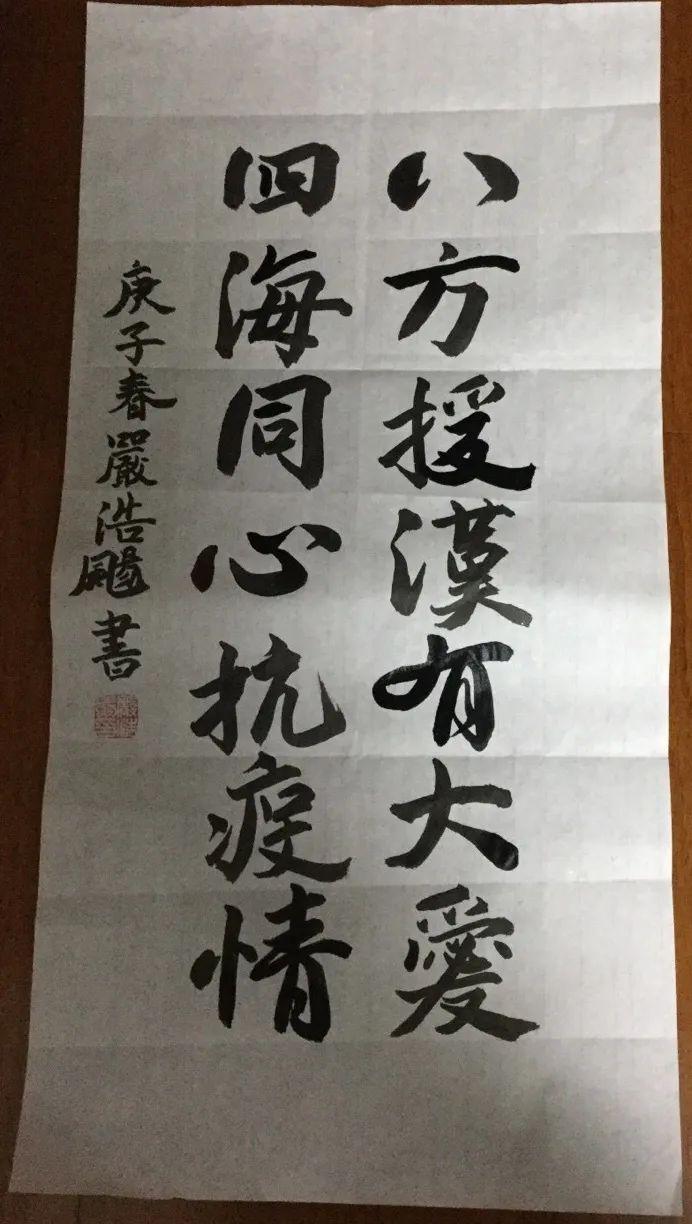 八方援漢有大愛
四海同心抗疫情
庚子春嚴浩颺書